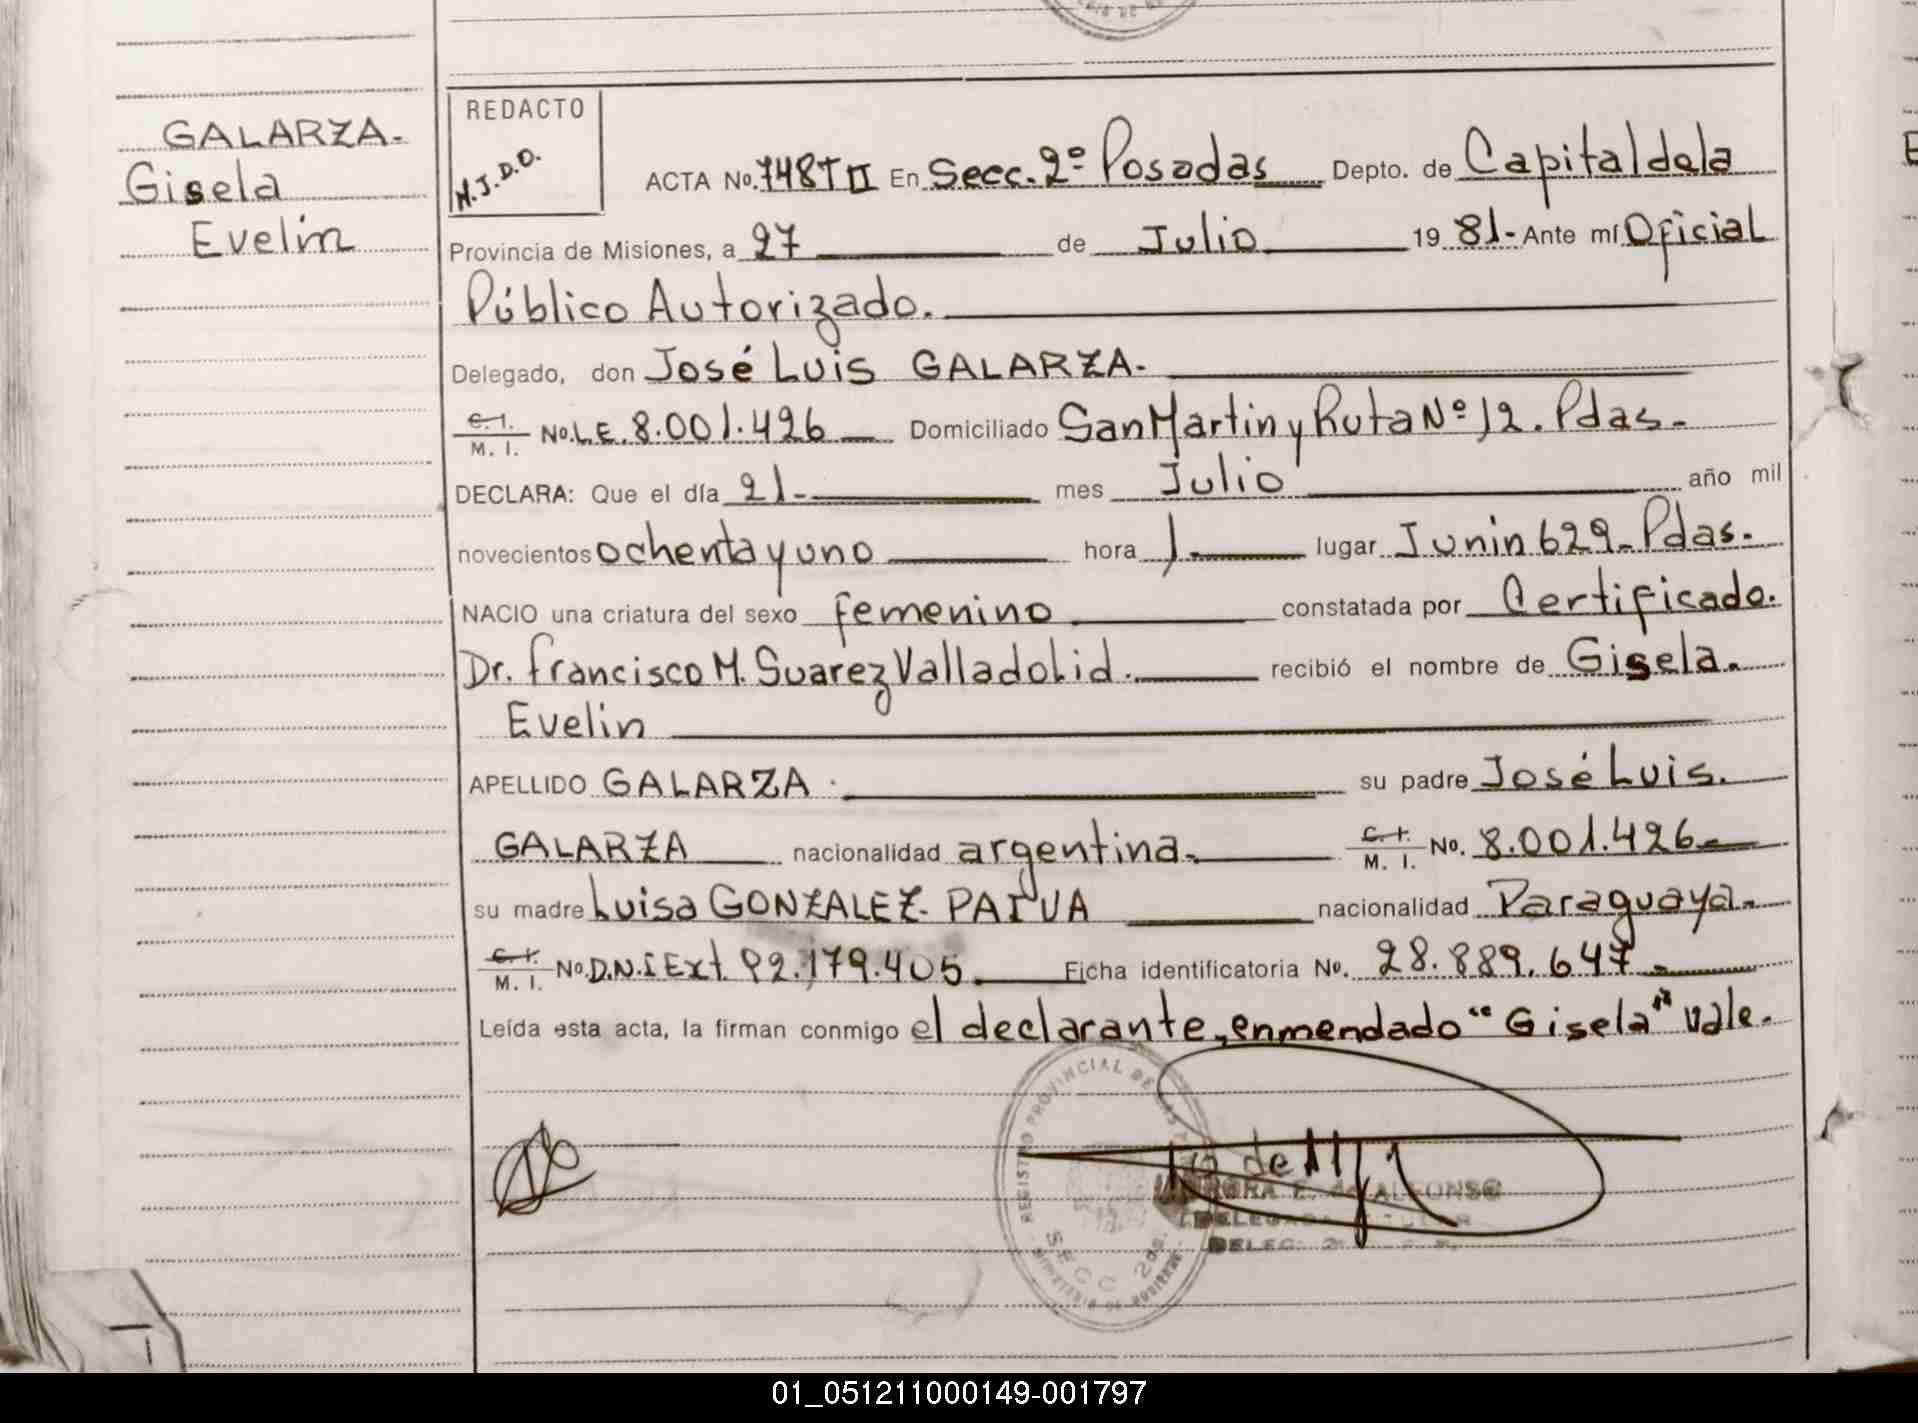 GALARZA.
Gisela
Evelin
REDACTO
M.J.D.O.
ACTA No. 748 T II En Secc. 2º Posadas Depto. de Capital de la
Provincia de Misiones, a 27 de Julio 19 81- Ante mí Oficial
Público Autorizado.
Delegado, don José Luis GALARZA.
C. I.
M. I. No. L.E. 8.001.426 Domiciliado San Martin y Ruta Nº 12. Pdas.
DECLARA: Que el día 21- mes Julio año mil
novecientos ochenta y uno hora 1. lugar Junin 629- Pdas.
NACIO una criatura del sexo femenino constatada por Certificado.
Dr. Francisco M. Suarez Valladolid. recibió el nombre de Gisela.
Evelin
APELLIDO GALARZA. su padre José Luis.
GALARZA nacionalidad argentina. C. I.
M. I. No. 8.001.426
su madre Luisa GONZALEZ PAIVA nacionalidad Paraguaya.
C. I.
M. I. No. D.N.I Ext. 92.179.405 Ficha identificatoria No. 28.889.647
Leída esta acta, la firman conmigo el declarante, enmendado "Gisela" vale.
REGISTRO PROVINCIAL DE LAS
SECC 2da.
MINISTERIO DE GOBIERNO
E. de ALFONSO
DELEGADA TITULAR
DELEG.
01_051211000149-001797